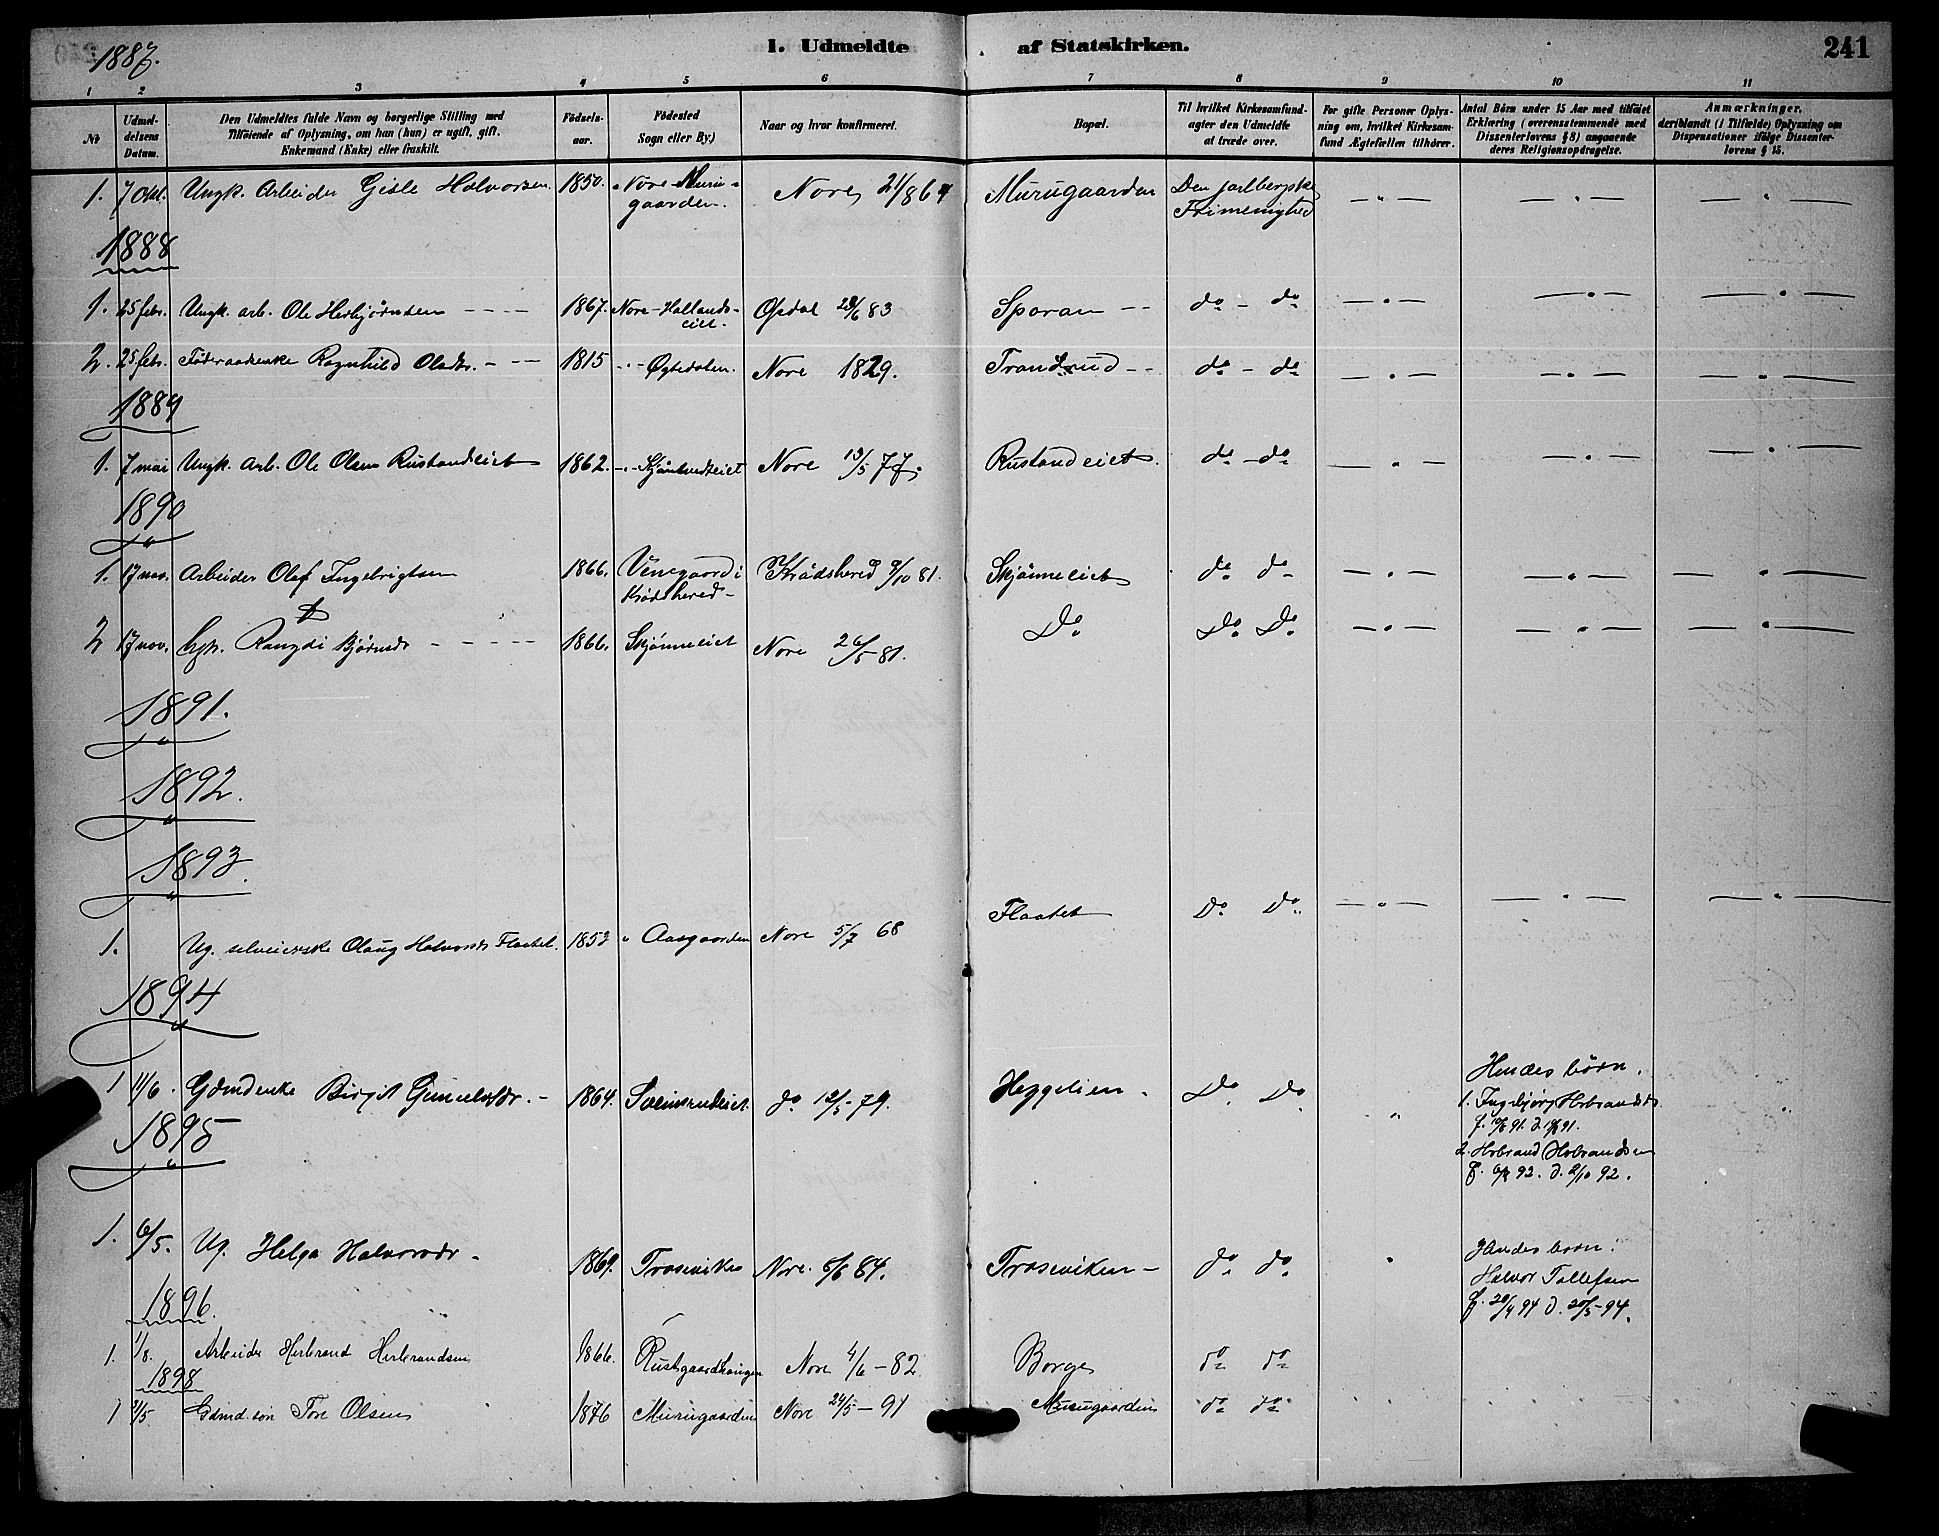 1887.
I. Udmeldte af Statskirken.
241
1 2 3 4 5 6 7 8 9 10 11
Nr
Udmeldelsens Datum.
Den Udmeldtes fulde Navn og borgerlige Stilling med
Tilføiende af Oplysning, om han (hun) er ugift, gift,
Enkemand (Enke) eller fraskilt.
Fødselsaar.
Fødested
Sogn eller By.)
Naar og hvor konfirmeret.
Bopæl.
Til hvilket Kirkesamfund-
agter den Udmeldte
at træde over.
For gifte Personer Oplys-
ning om, hvilket Kirkesam-
fund Ægtefællen tilhører.
Antal Børn under 15 Aar med tilføiet
Erklæring (overensstemmende med
Dissenterlovens § 8) angaaende
deres Religionsopdragelse.
Anmærkninger,
deriblandt (i Tilfælde) Oplysning om
Dispensationer ifølge Dissenter-
lovens § 15.
1. 7 Okt. Ungk. Arbeider Gisle Halvorsen 1850. Nore Muru-
gaarden. Nore 2/ 1864 Murugaarden Den jarlbergske
Frimenighed
1888
1. 25 febr. Ungk. arb. Ole Herbjørnsen 1867. Nore-Hallands-
eiet. Opdal 28/6 83 Sporan do - do
2. 25 febr. Føderaadsenke Ragnhild Olsdtr. 1815 Øytedalen. Nore 1829. Trandrud do - do
1889
1. 7 mai Ungk. Arb. Ole Olsen Rustandeiet 1862. Nore 13/5 77. Rustandeiet. do - do
1890
1. 17 nov. Arbeider Olaf Ingebrigtsen 1866. Venegaard i
Krødsherred Krødsherred 9/10 81. Skjønneeiet do do
2 17 nov. Rangdi Bjørnsdr 1866. Skjønneeiet Nore 26/5 81. Do Do Do
1891.
1892.
1893.
1. Ug. selveierske Olaug Halvorsdr Flaatet. 1853 " Aasgaarden Nore 5/7 68 Flaatet Do Do
1894
1 11/6. Gdmdenke Birgit Gunulvsdr. 1864. do 12/5-79. Heggelien. Do Do Hendes børn.
1. Ingebjørg Herbrandsdr.
2. Hebrand Hebrandsen
f. 6/8 92. d. 2/10 92.
1895
1. 6/5. Ug. Helga Halvorsdr 1869. Traseviken Nore. 6/6 84. Traseviken do do Hendes born:
Halvor Tollefsen
f. 20/4 94 d. 20/5-94.
1896.
1. 1/8. Arbeider Herbrand Herbrandsen 1866. Rustgaardhaugen Nore 4/6-82. Borge do do
1898
1 21/5 Gdmd. søn Tore Olsen 1876 Murugaarden Nore 24/5-91 Murugaarden do do